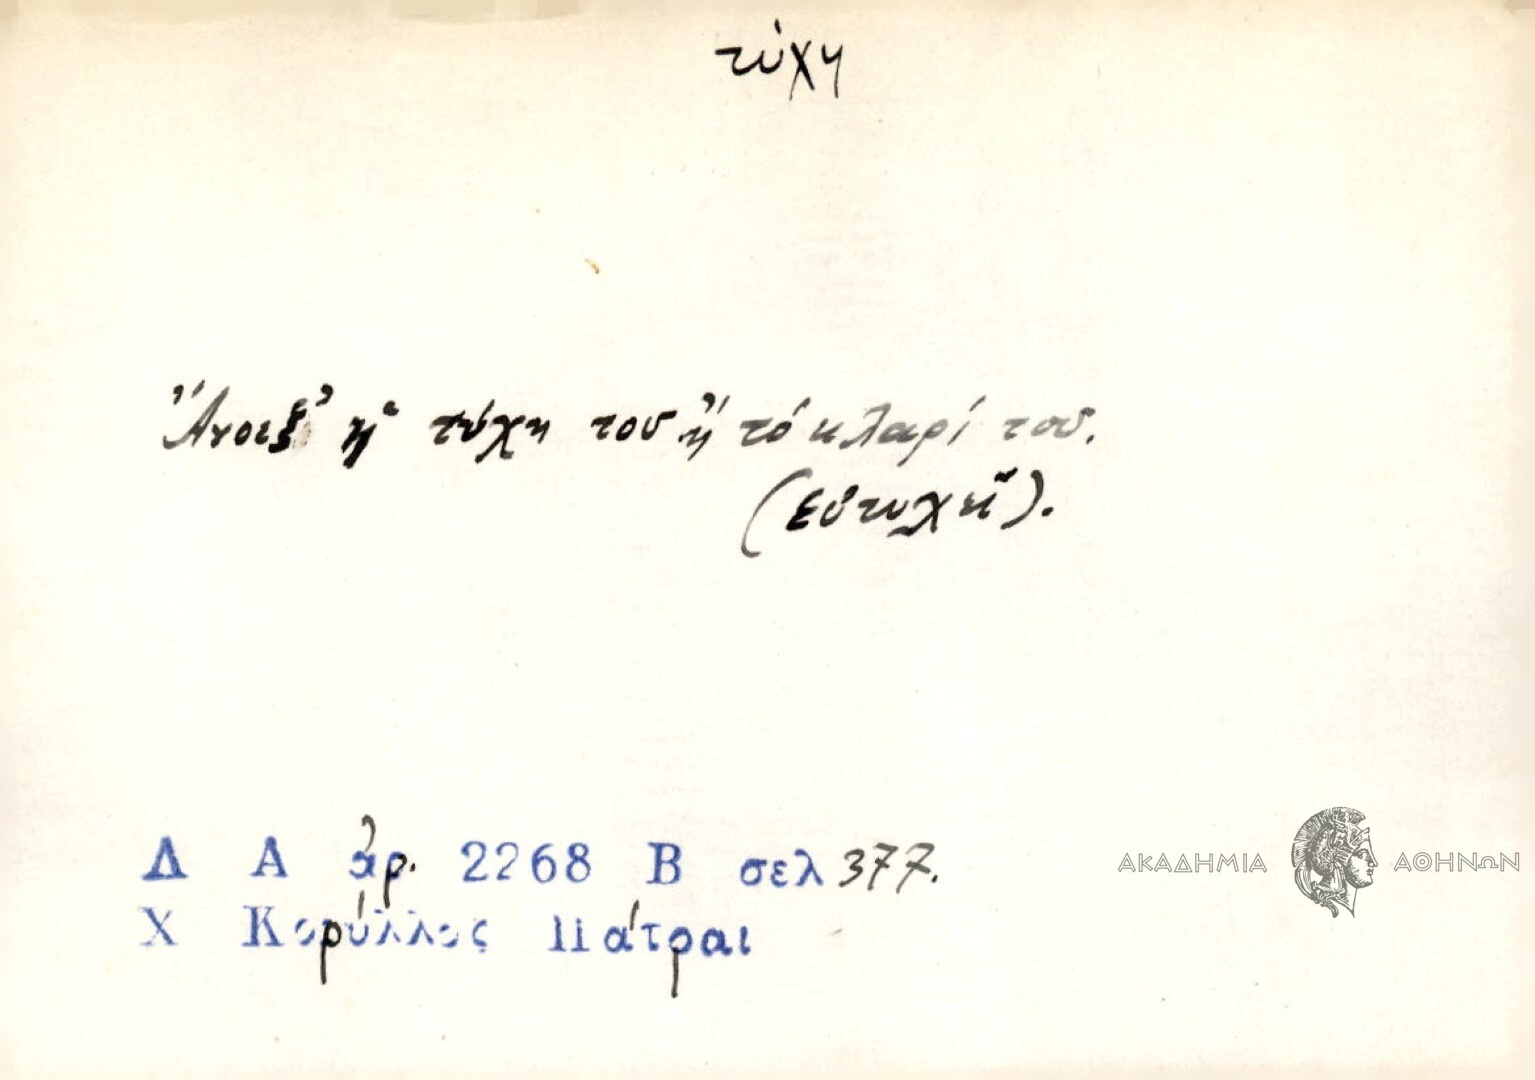 τύχη
Ἄνοιξ' ἡ τύχη του ἤ τό κλαρί του.
(εὐτυχεῖ).
Δ Α ἀρ. 2268 Β σελ 377.
Χ Κορύλλος Πάτραι
ΑΚΑΔΗΜΙΑ ΑΘΗΝΩΝ